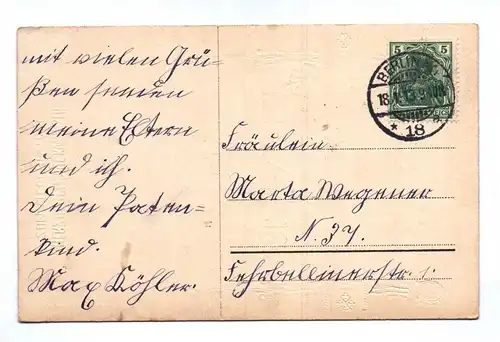 mit vielen Grü=
ßen seneun
meine Eltern
und ich.
Dein Paten=
kind.
Max Köhler.
5 5
BERLIN
18
* 18
Fräulein
Marta Wegener
N. 37.
Fehrbellinerstr.